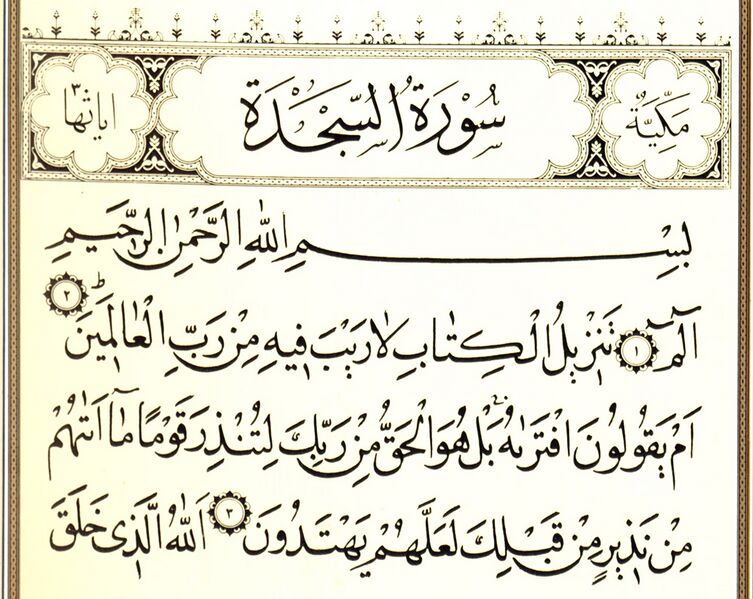 مَكِّيَّةٌ
سُورَةُ السَّجْدَةِ
اٰيَاتُهَا ٣٠
بِسْمِ اللّٰهِ الرَّحْمٰنِ الرَّحٖيمِ
الٓمٓ ﴿١﴾ تَنْزٖيلُ الْكِتَابِ لَا رَيْبَ فٖيهِ مِنْ رَبِّ الْعَالَمٖينَ ﴿٢﴾ ط
اَمْ يَقُولُونَ افْتَرٰيهُ ۚ بَلْ هُوَ الْحَقُّ مِنْ رَبِّكَ لِتُنْذِرَ قَوْمًا مَٓا اَتٰيهُمْ
مِنْ نَذٖيرٍ مِنْ قَبْلِكَ لَعَلَّهُمْ يَهْتَدُونَ ﴿٣﴾ اَللّٰهُ الَّذٖى خَلَقَ